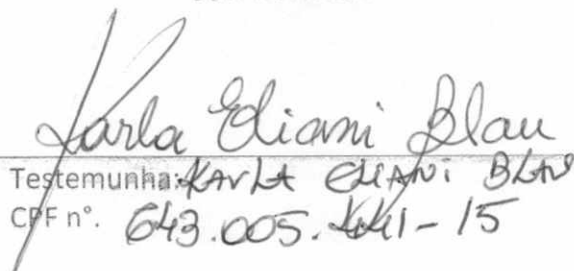 Karla Eliani Blau
Testemunha: KARLA ELIANI BLAU
CPF nº. 643.005.441-15